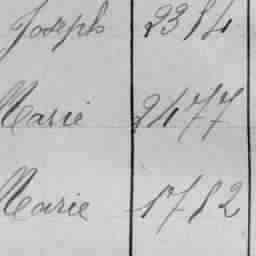 Joseph 2384
Marie 2477
Marie 1782